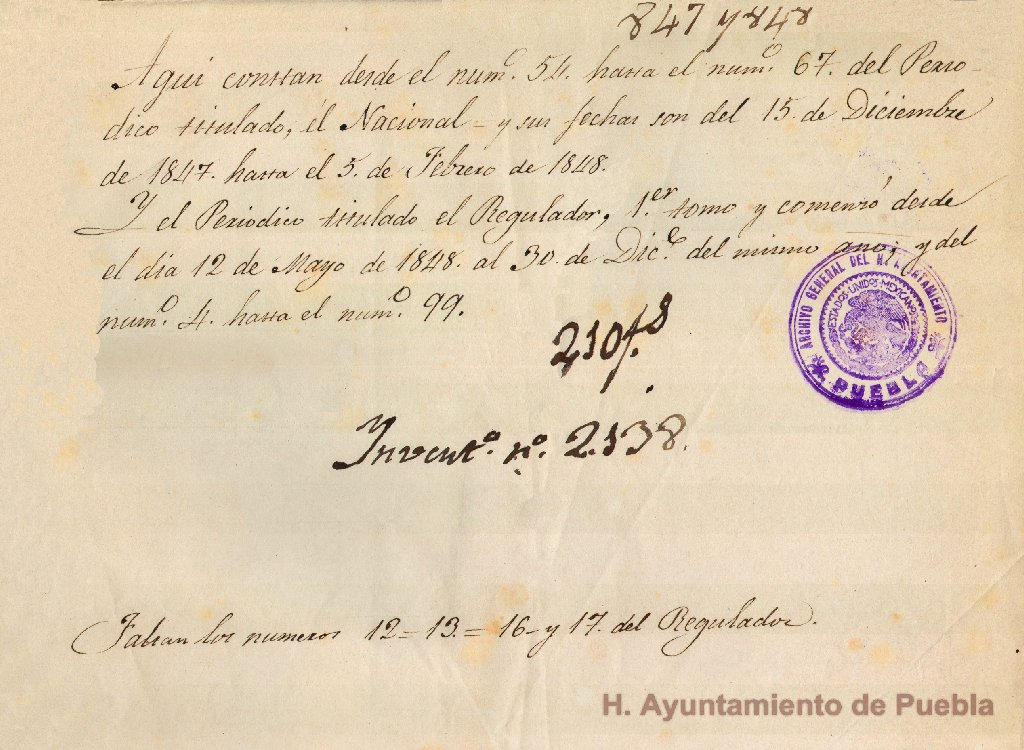 847 y 848
Aqui constan desde el num.º 54. hasta el num.º 67. del Perio-
dico titulado, él Nacional = y sus fechas son del 15. de Diciembre
de 1847. hasta el 5. de Febrero de 1848.
Y el Periodico titulado el Regulador, 1.er tomo y comenzó desde
el dia 12 de Mayo de 1848. al 30. de Dic.e del mismo año, y del
num.º 4. hasta el num.º 99.
210 f.s
Invent.º n.º 2.138.
ARCHIVO GENERAL DEL H. AYUNTAMIENTO
ESTADOS UNIDOS MEXICANOS
PUEBLA
Faltan los numeros 12 = 13. = 16 - y 17. del Regulador.
H. Ayuntamiento de Puebla